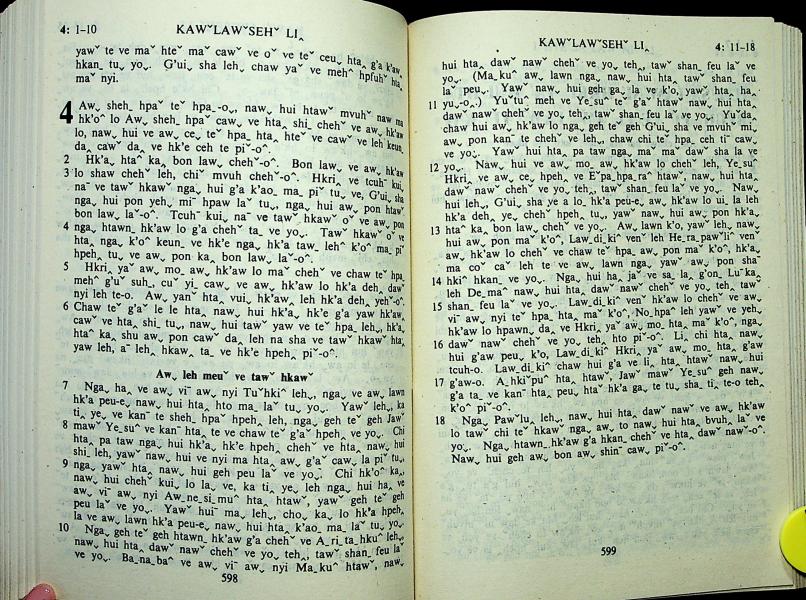 4: 1-10 KAWˇLAWˇSEHˇ LI‸
yawˇ te ve maˇ hteˇ maˇ cawˇ ve oˇ ve teˇ ceu˯ hta‸ g'a k'aw‸
hkanˍ tu˯ yo˯. G'ui˯ sha leh˯ chaw yaˇ ve meh^ hpfuhˇ hta‸
maˇ nyi.
4 Aw˯ shehˍ hpaˇ teˇ hpaˍ-o˯, naw˯ hui htawˇ mvuhˇ naw ma
hk'o^ lo Aw˯ shehˍ hpaˇ caw˯ ve hta‸ shiˍ chehˇ ve aw˯ hk'aw
lo, naw˯ hui ve aw˯ ce˯ teˇ hpaˍ htaˍ hteˇ ve cawˇ ve leh keun˯
da‸ cawˇ da‸ ve hk'e ceh te piˇ-o^.
2 Hk'a˯ hta^ ka‸ bon law˯ chehˇ-o^. Bon law˯ ve aw˯ hk'aw
3 lo shaw chehˇ leh, chiˇ mvuh chehˇ-o^. Hkri˯ ve tcuhˇ kui˯
naˉ ve tawˇ hkawˇ nga˯ hui g'a k'aoˍ maˍ piˇ tu˯ ve, G'ui˯ sha
nga˯ hui pon yeh˯ miˉ hpaw laˇ tu˯, nga˯ hui aw˯ pon htawˇ
bon law˯ laˇ-o^. Tcuhˇ kui˯ naˉ ve tawˇ hkawˇ oˇ ve aw˯ pon
4 nga˯ htawn˯ hk'aw lo g'a chehˇ ta˯ ve yo˯. Tawˇ hkawˇ oˇ ve
hta‸ nga˯ k'o^ keun˯ ve hk'e nga˯ hk'a tawˍ leh^ k'o^ maˍ piˇ
hpeh˯ tu˯ ve aw˯ pon ka‸ bon law˯ laˇ-o^.
5 Hkri˯ yaˇ aw˯ mo˯ aw˯ hk'aw lo maˇ chehˇ ve chaw teˇ hpaˍ
meh^ g'uˇ suh˯ cuˇ yi˯ caw˯ ve aw˯ hk'aw lo hk'a deh‸ dawˇ
nyi leh te-o. Aw˯ yanˇ hta‸ vui˯ hk'aw˯ leh hk'a deh‸ yehˇ-o^.
6 Chaw teˇ g'aˇ le le hta‸ naw˯ hui hk'a˯ hk'e g'a yaw hk'aw‸
cawˇ ve hta‸ shi˯ tu˯, naw˯ hui taw yaw ve teˇ hpaˍ leh˯, hk'a˯
hta^ ka‸ shu aw˯ pon cawˇ da‸ leh na sha ve tawˇ hkawˇ hta‸
yaw leh, aˉ leh‸ hkaw‸ ta˯ ve hk'e hpeh‸ piˇ-o^.
Aw˯ leh meuˇ ve tawˇ hkawˇ
7 Nga‸ ha‸ ve aw˯ viˉ aw˯ nyi Tuˇhkiˇ leh˯, nga˯ ve aw˯ lawn
hk'a peu-e‸ naw˯ hui hta‸ hto ma‸ laˇ tu˯ yo˯. Yawˇ leh˯, ka
ti‸ ye˯ ve kanˉ te shehˍ hpaˇ hpeh‸ leh, nga˯ geh teˇ geh Jawˇ
8 mawˇ Ye˯suˇ ve kanˉ hta‸ te ve chaw teˇ g'aˇ hpeh‸ ve yo˯. Chi
hta‸ pa taw nga˯ hui hk'a˯ hk'e hpeh‸ chehˇ ve hta‸ naw˯ hui
shi˯ leh, yaw naw˯ hui ve nyi ma hta‸ aw˯ g'aˇ caw˯ la piˇ tu˯,
9 nga˯ yawˇ hta‸ naw˯ hui geh peu laˇ ve yo˯. Chi hk'o^ ka‸,
naw˯ hui chehˇ kui˯ lo la ve, ka ti‸ ye˯ leh nga˯ hui ha‸ ve
aw˯ viˉ aw˯ nyi Aw˯neˍsiˍmu^ hta‸ htaw˯, yawˇ geh teˇ geh
peu laˇ ve yo˯. Yawˇ huiˉ ma˯ leh˯, cho˯ ka‸ lo hk'a hpeh‸
la ve aw˯ lawn hk'a peu-e‸ naw˯ hui hta‸ k'aoˍ maˍ laˇ tu˯ yo˯.
10 Nga˯ geh teˇ geh htawn‸ hk'aw g'a chehˇ ve A˯riˍtaˍhku^ leh˯
naw˯ hui hta‸ daw˯ nawˇ chehˇ ve yo teh‸, taw shanˍ feu laˇ
ve yo˯. Baˍnaˍbaˇ ve aw˯ viˉ aw˯ nyi Maˍku^ htaw˯, naw˯
598
KAWˇLAWˇSEHˇ LI‸ 4: 11-18
hui hta‸ dawˇ nawˇ chehˇ ve yo˯ teh‸, tawˇ shanˍ feu laˇ ve
yo˯. (Maˍku^ aw˯ lawn nga˯ naw˯ hui hta‸ tawˇ shanˍ feu
laˇ peu˯. Yawˇ naw˯ hui geh ga˯ la ve k'o, yawˇ hta‸ ha‸
11 yu˯-o‸.) Yuˇtuˇ meh ve Ye˯suˇ teˇ g'aˇ htaw˯ naw˯ hui hta‸
dawˇ nawˇ chehˇ ve yo˯ teh‸, tawˇ shanˍ feu laˇ ve yo˯. Yuˇda˯
chaw hui aw˯ hk'aw lo nga˯ geh teˇ geh G'ui˯ sha ve mvuhˇ mi˯
aw˯ pon kanˉ te chehˇ ve leh˯, chaw chi teˇ hpaˍ ceh tiˇ caw˯
ve yo˯. Yawˇ hui hta‸ pa taw nga˯ maˇ maˇ dawˇ sha la ve
12 yo˯. Naw˯ hui ve aw˯ mo˯ aw˯ hk'aw lo chehˇ leh, Ye˯suˇ
Hkri˯ ve ce˯ hpeh‸ ve Eˇpa˯hpaˍra^ htaw˯ naw˯ hui hta‸
dawˇ nawˇ chehˇ ve yo˯ teh‸, tawˇ shanˍ feu laˇ ve yo˯. Nawˇ
hui leh˯, G'ui˯ sha ye a lo˯ hk'a peu-e‸ aw˯ hk'aw lo ui˯ la leh
hk'a deh‸ ye˯ chehˇ hpeh‸ tu˯, yawˇ naw˯ hui aw˯ pon hk'a˯
13 hta^ ka‸ bon lawˇ chehˇ ve yo˯. Aw˯ lawn k'o, yawˇ leh˯ naw˯
hui aw˯ pon maˇ k'o^, Law˯diˍki^ venˇ leh Heˍraˍpawˇliˇ venˇ
aw˯ hk'aw lo chehˇ ve chaw teˇ hpaˍ aw˯ pon maˇ k'o^, hk'a˯
ma coˇ caˇ leh te ve aw˯ lawn nga˯ yawˇ aw˯ pon shaˉ
14 hkiˇ hkanˍ ve yo˯. Nga˯ hui ha‸ jaˇ ve saˍ la‸ g'on˯ Luˇka‸
leh Deˍmaˇ naw˯ hui hta‸ dawˇ nawˇ chehˇ ve yo˯ teh‸ tawˇ
15 shanˍ feu laˇ ve yo˯. Law˯diˍki^ venˇ hk'aw lo chehˇ ve aw˯
viˉ aw˯ nyi teˇ hpaˍ hta‸ maˇ k'o^, No˯hpa^ leh yawˇ ve yeh˯
hk'aw lo hpawn˯ da‸ ve Hkri˯ yaˇ aw˯ moˍ hta‸ maˇ k'o^, nga˯
16 dawˇ nawˇ chehˇ ve yo˯ teh‸ hto piˇ-o^. Li‸ chi hta‸ naw˯
hui g'aw peu˯ k'o, Law˯diˍki^ Hkri˯ yaˇ aw˯ moˍ hta‸ g'aw
tcuh-o. Law˯diˍki^ chaw hui g'a ve li‸ hta‸ htawˇ naw˯ hui
17 g'aw-o. A˯hkiˇpu^ hta‸ htaw˯, Jawˇ mawˇ Ye˯suˇ geh naw˯
g'a ta˯ ve kanˉ hta‸ peu˯ htaˇ hk'a ga˯ te tu˯ shaˍ tiˍ te-o teh‸
k'o^ piˇ-o^.
18 Nga˯ Pawˇlu˯ leh˯, naw˯ hui hta‸ dawˇ nawˇ ve aw˯ hk'aw
lo tawˇ chi teˇ hkawˇ nga˯ aw˯ to naw˯ hui hta‸ bvuh‸ laˇ ve
yo˯. Nga˯ htawn‸ hk'aw g'a hkan˯ chehˇ ve hta‸ dawˇ nawˇ-o^.
Naw˯ hui geh aw˯ bon aw˯ shinˉ caw˯ piˇ-o^.
599